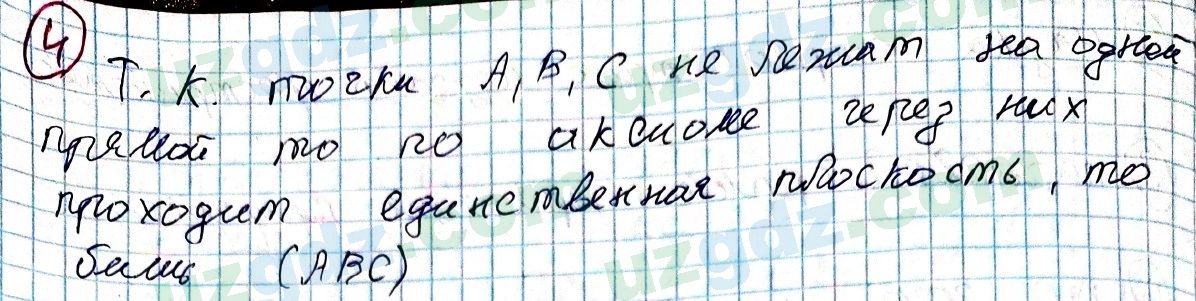 4
Т. к. точки А, В, С не лежат на одной
прямой то по аксиоме через них
проходит единственная плоскость, то
бишь (АВС)